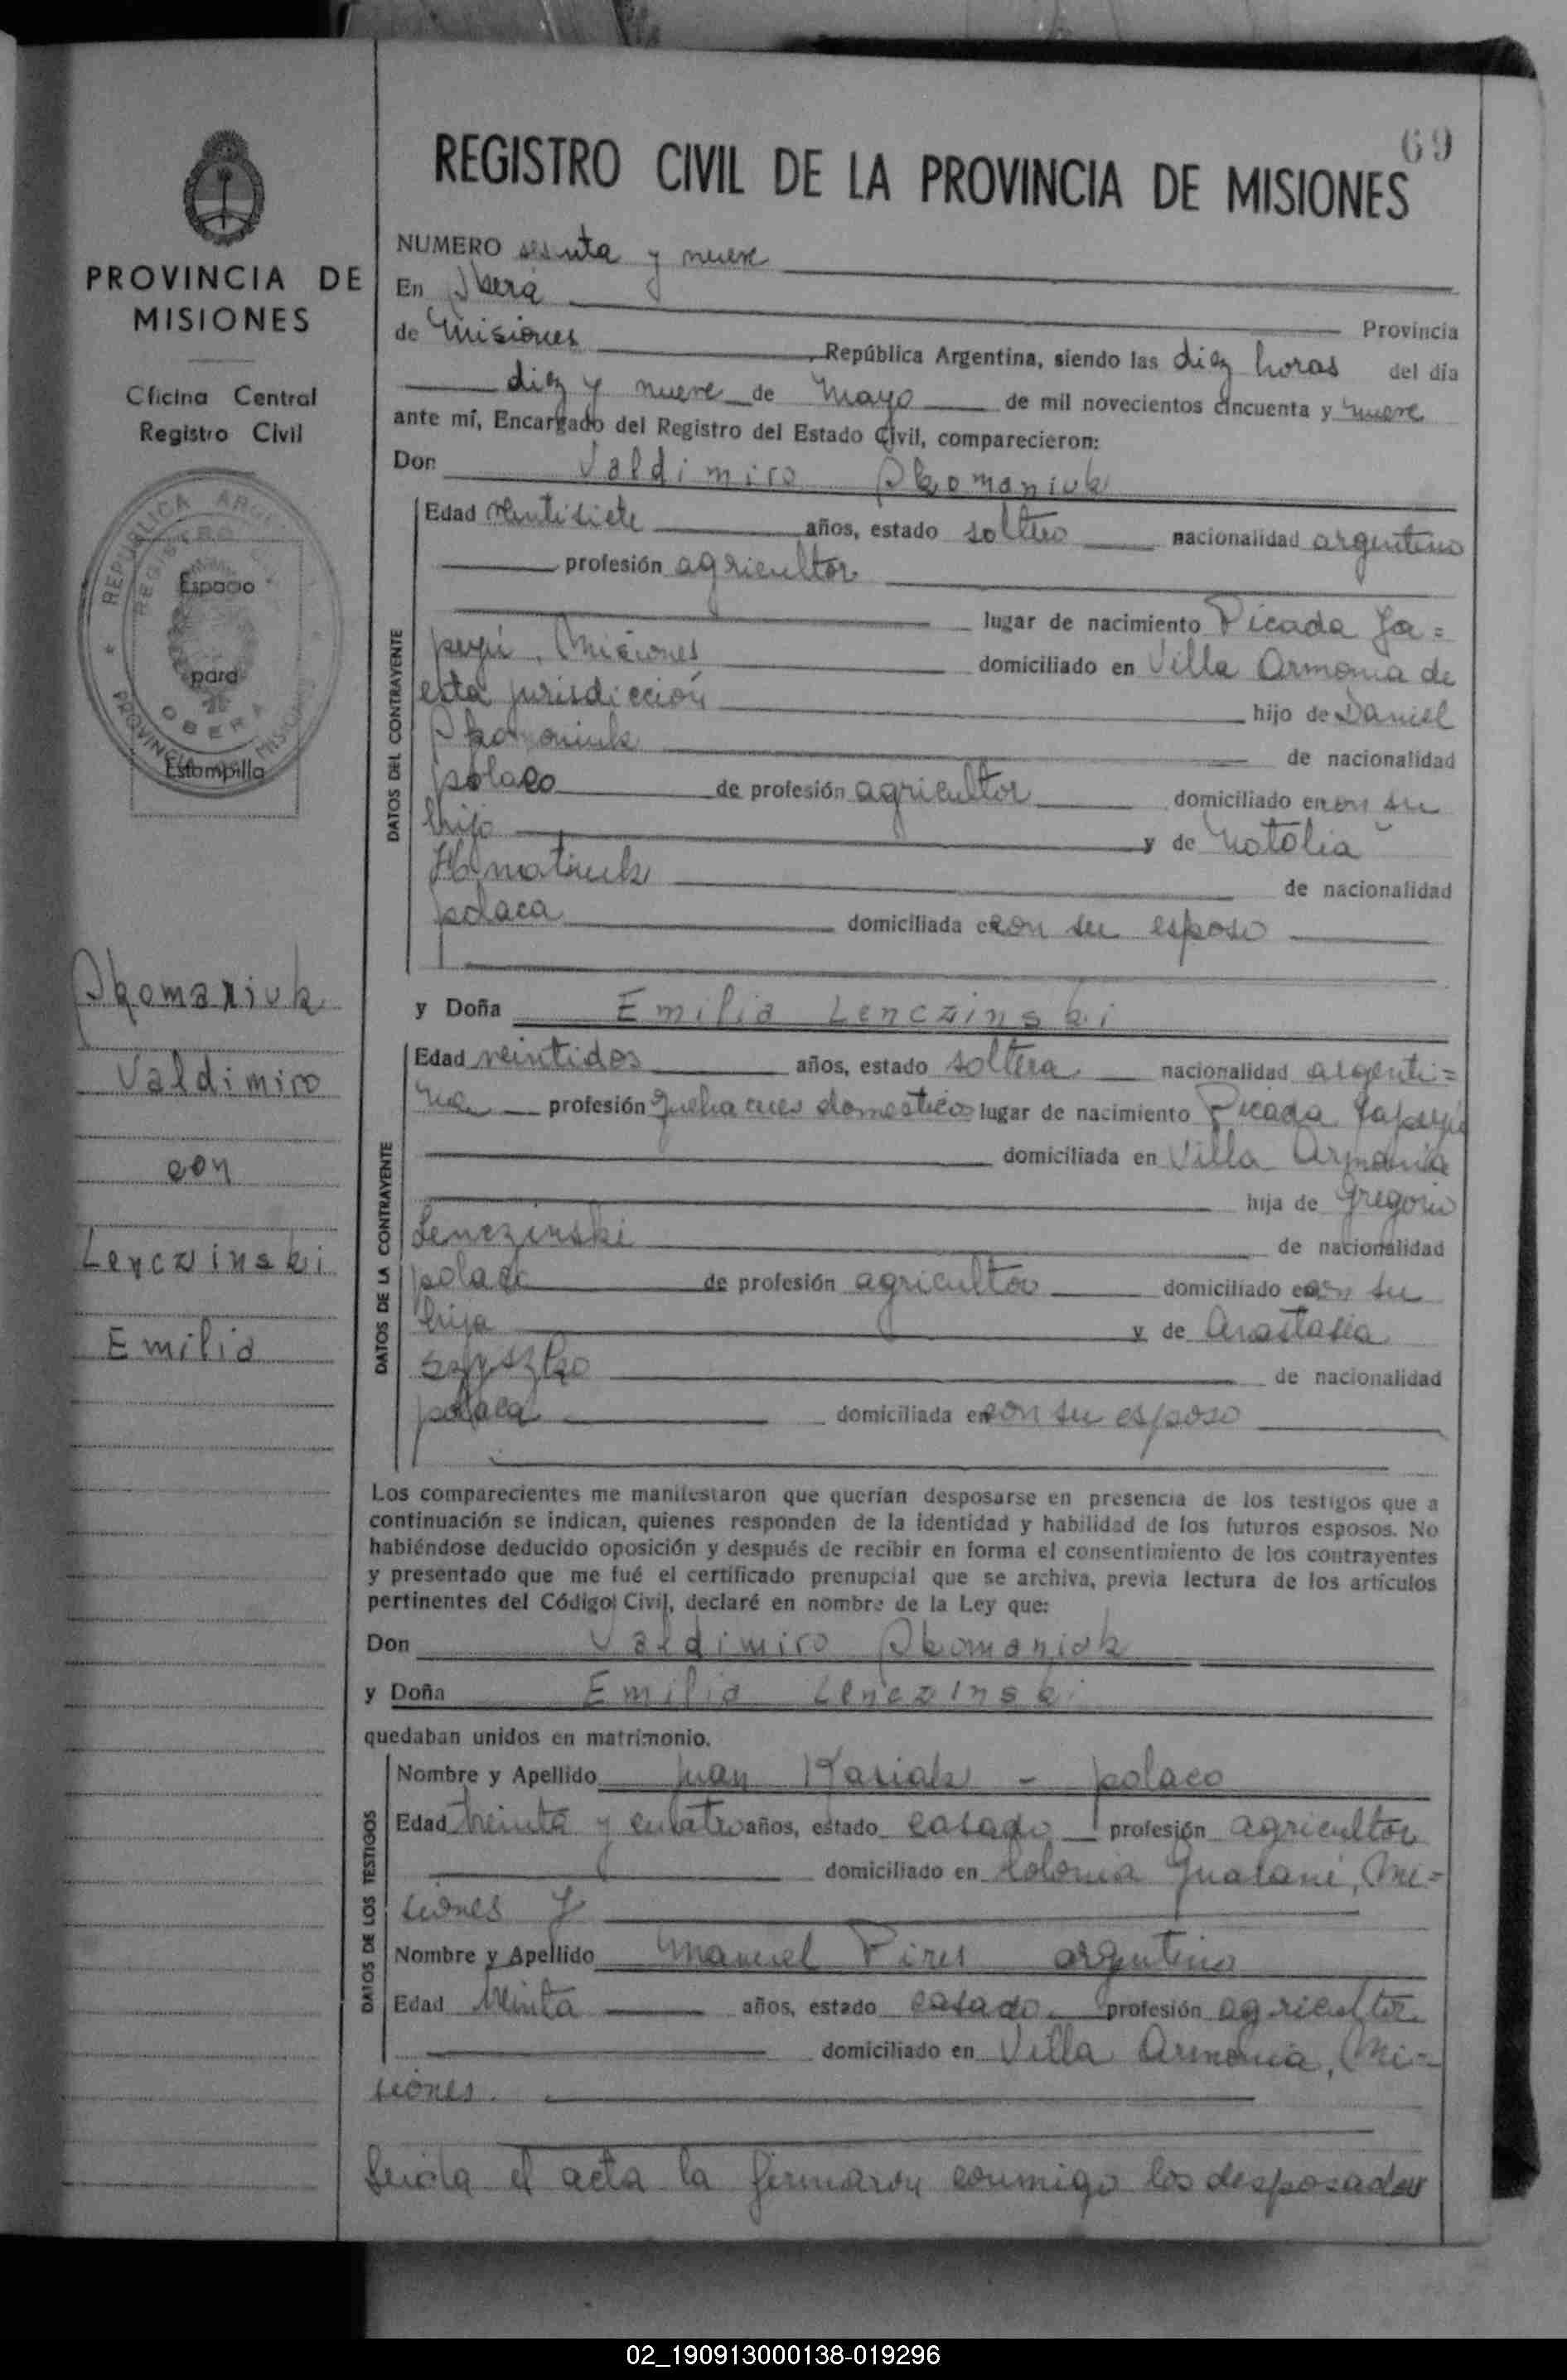 69
REGISTRO CIVIL DE LA PROVINCIA DE MISIONES
PROVINCIA DE
MISIONES
Oficina Central
Registro Civil
REPUBLICA ARG
REGISTRO
Espacio
para
OBERA
PROVINCIA MISIONES
Estampilla
Skomaniuk
Valdimiro
con
Lenczinski
Emilia
NUMERO sesenta y nueve
En Oberá
Provincia
de Misiones República Argentina, siendo las diez horas del día
diez y nueve de Mayo de mil novecientos cincuenta y nueve
ante mí, Encargado del Registro del Estado Civil, comparecieron:
Don Valdimiro Skomaniuk
DATOS DEL CONTRAYENTE
Edad veintisiete años, estado soltero nacionalidad argentino
profesión agricultor
lugar de nacimiento Picada Ya=
peyú, Misiones domiciliado en Villa Armonía de
esta jurisdicción hijo de Daniel
Skomaniuk de nacionalidad
polaco de profesión agricultor domiciliado en con su
hijo y de Natalia
de nacionalidad
polaca domiciliada con su esposo
y Doña Emilia Lenczinski
DATOS DE LA CONTRAYENTE
Edad veintidos años, estado soltera nacionalidad argenti=
na profesión quehaceres domesticos lugar de nacimiento Picada Yapeyú
domiciliada en Villa Armonía
hija de Gregorio
Lenczinski de nacionalidad
polaco de profesión agricultor domiciliado en con su
hija y de Anastasia
de nacionalidad
polaca domiciliada en con su esposo
Los comparecientes me manifestaron que querían desposarse en presencia de los testigos que a
continuación se indican, quienes responden de la identidad y habilidad de los futuros esposos. No
habiéndose deducido oposición y después de recibir en forma el consentimiento de los contrayentes
y presentado que me fué el certificado prenupcial que se archiva, previa lectura de los artículos
pertinentes del Código Civil, declaré en nombre de la Ley que:
Don Valdimiro Skomaniuk
y Doña Emilia Lenczinski
quedaban unidos en matrimonio.
DATOS DE LOS TESTIGOS
Nombre y Apellido Juan - polaco
Edad treinta y cuatro años, estado casado profesión agricultor
domiciliado en Colonia Guaraní, Mi=
siones y
Nombre y Apellido Manuel Pires argentino
Edad treinta años, estado casado profesión agricultor
domiciliado en Villa Armonía, Mi=
siones.
Leída el acta la firmaron conmigo los desposados
02_190913000138-019296